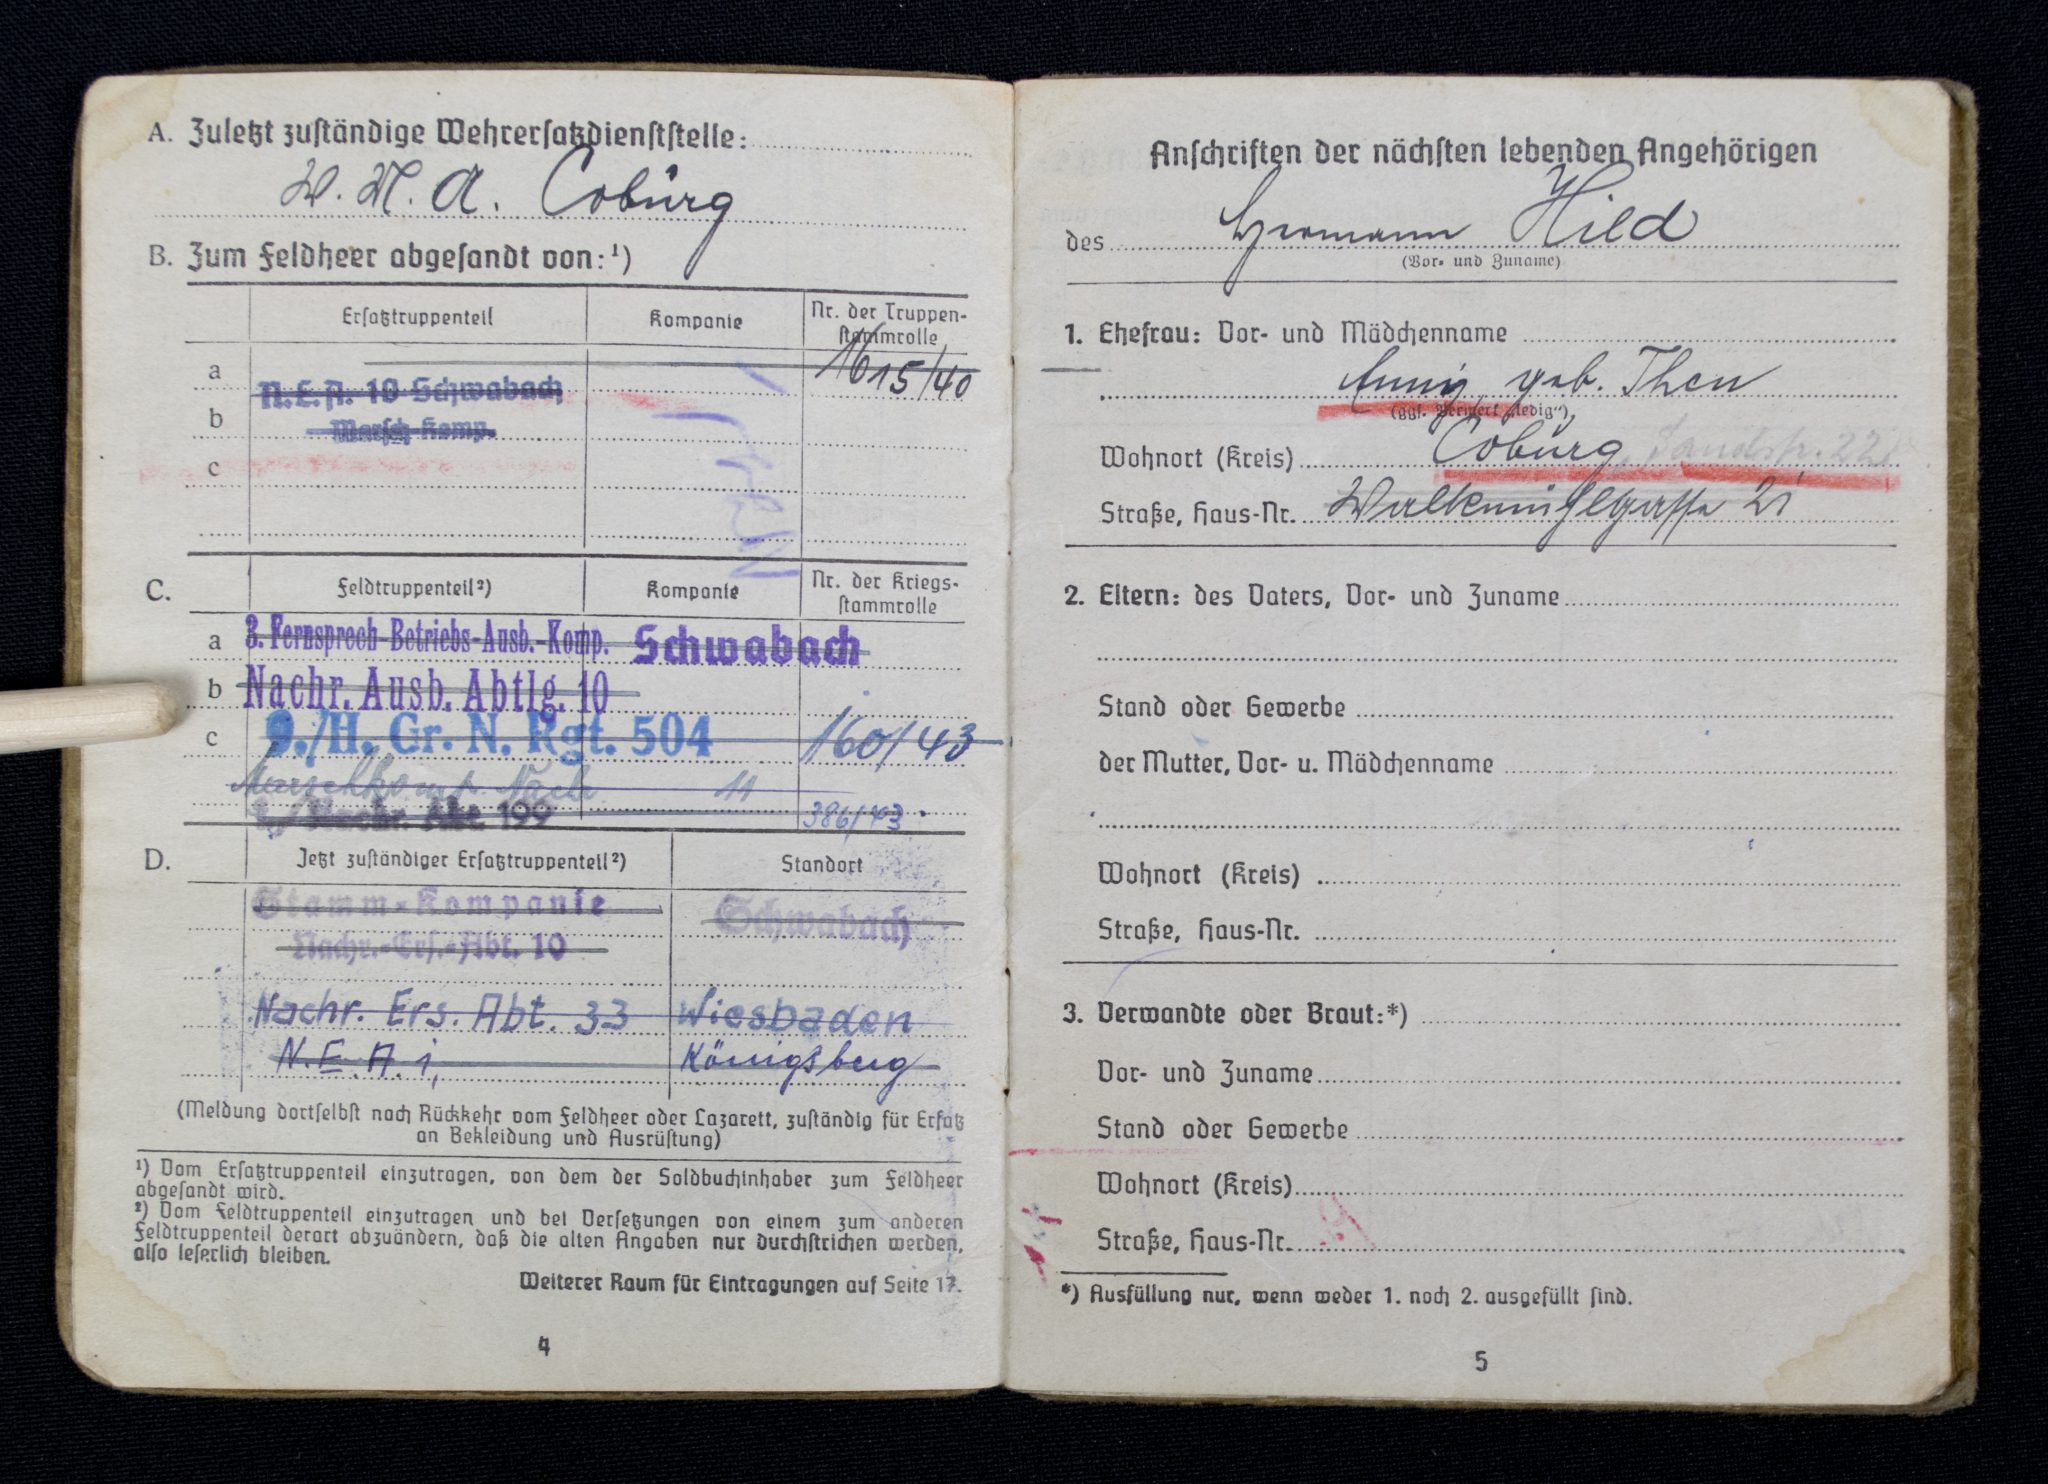 A. Zuletzt zuständige Wehrersatzdienststelle:
W. M. A. Coburg
B. Zum Feldheer abgesandt von:¹)
Ersatztruppenteil Kompanie Nr. der Truppen-
stammrolle
a 1615/40
N.E.A. 10 Schwabach
b Marsch-Komp.
c
C. Feldtruppenteil²) Kompanie Nr. der Kriegs-
stammrolle
a 3. Fernsprech-Betriebs-Ausb.-Komp. Schwabach
b Nachr. Ausb. Abtlg. 10
c 9./H. Gr. N. Rgt. 504 160/43
Marschkomp. Nachr.
Nachr. Abt. 199 386/43
D. Jetzt zuständiger Ersatztruppenteil²) Standort
Stamm-Kompanie Schwabach
Nachr.-Ers.-Abt. 10
Nachr. Ers. Abt. 33 Wiesbaden
N.E.A. 1, Königsberg
(Meldung dortselbst nach Rückkehr vom Feldheer oder Lazarett, zuständig für Ersatz
an Bekleidung und Ausrüstung)
¹) Vom Ersatztruppenteil einzutragen, von dem der Soldbuchinhaber zum Feldheer
abgesandt wird.
²) Vom Feldtruppenteil einzutragen und bei Versetzungen von einem zum anderen
Feldtruppenteil derart abzuändern, daß die alten Angaben nur durchstrichen werden,
also leserlich bleiben.
Weiterer Raum für Eintragungen auf Seite 17.
4
Anschriften der nächsten lebenden Angehörigen
des Hermann Hild
(Vor- und Zuname)
1. Ehefrau: Vor- und Mädchenname
Anny, geb. Then
(ggf. Vermerk „ledig“)
Wohnort (Kreis) Coburg, Sandstr. 22
Straße, Haus-Nr. Walkmühlgasse 21
2. Eltern: des Vaters, Vor- und Zuname
Stand oder Gewerbe
der Mutter, Vor- u. Mädchenname
Wohnort (Kreis)
Straße, Haus-Nr.
3. Verwandte oder Braut:*)
Vor- und Zuname
Stand oder Gewerbe
Wohnort (Kreis)
Straße, Haus-Nr.
*) Ausfüllung nur, wenn weder 1. noch 2. ausgefüllt sind.
5